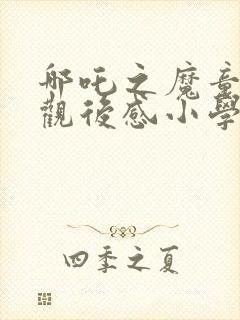 哪吒之魔童
觀後感小學
四季之夏